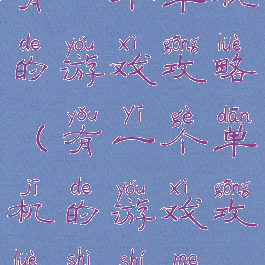 de yóu xì gōng lüè
的 游 戏 攻 略
yǒu yī gè dān
( 有 一 个 单
jī de yóu xì gōng
机 的 游 戏 攻
lüè shì shí me